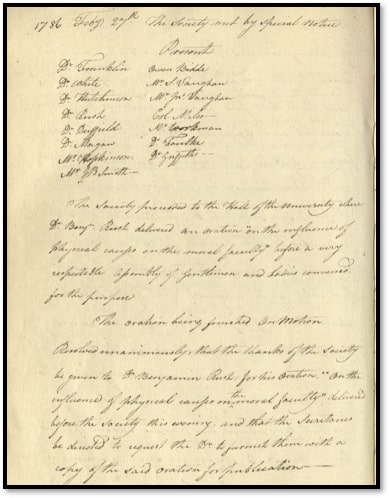 1786 Feby. 27th The Society met by Special Notice
Present
Dr. Franklin Owen Biddle
Dr. White Mr. S Vaughan
Dr. Hutchinson Mr. Jno. Vaughan
Dr. Rush Col. Niles
Dr. Duffield Mr. Workman
Dr. Morgan Dr. Foulke
Mr. Hopkinson Dr. Griffitts
Mr. JB Smith
The Society proceeded to the Hall of the University where
Dr. Benjn. Rush delivered an oration "on the influence of
physical causes on the moral faculty" before a very
respectable Assembly of Gentlemen and Ladies convened
for the purpose
The oration being finished On Motion
Resolved unanimously, that the thanks of the Society
be given to Dr. Benjamin Rush for his Oration, "On the
influence of physical causes on the moral faculty" delivered
before the Society this evening, and that the Secretaries
be directed to request the Dr. to furnish them with a
copy of the said oration for publication